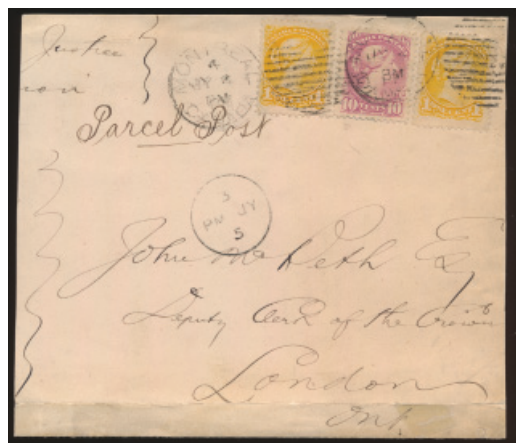 Justice
MONTREAL
4
PM
1 1
10 CENTS 10
PM
1 1
Parcel Post
PM JY
5
John McBeth Esq
Deputy Clerk of the Crown
London
Ont.